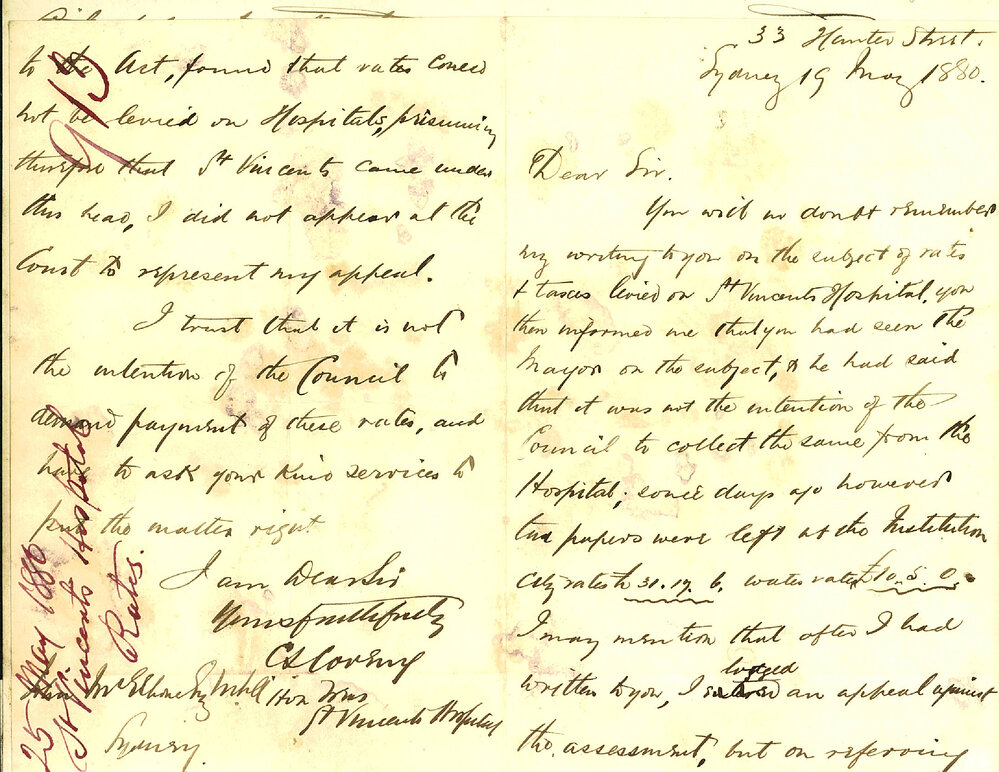 33 Hunter Street.
Sydney 19 May 1880.
Dear Sir.
You will no doubt remember
my writing to you on the subject of rates
& taxes levied on St Vincents Hospital, you
then informed me that you had seen the
Mayor on the subject, & he had said
that it was not the intention of the
Council to collect the same from the
Hospital; some days ago however
two papers were left at the Institution
City rates £31.17.6, water rates £10.5.0.
I may mention that after I had
lodged
written to you, I an appeal against
the assessment, but on referring
to the Act, found that rates could
not be levied on Hospitals, presuming
therefore that St Vincents came under
this head, I did not appear at the
Court to represent my appeal.
I trust that it is not
the intention of the Council to
demand payment of these rates, and
have to ask your kind services to
put the matter right
I am Dear Sir
Yours faithfully
Hon Treas
St Vincents Hospital
John McElhone Esq
Sydney.
913
25 May 1880
St Vincents Hospital
Rates.